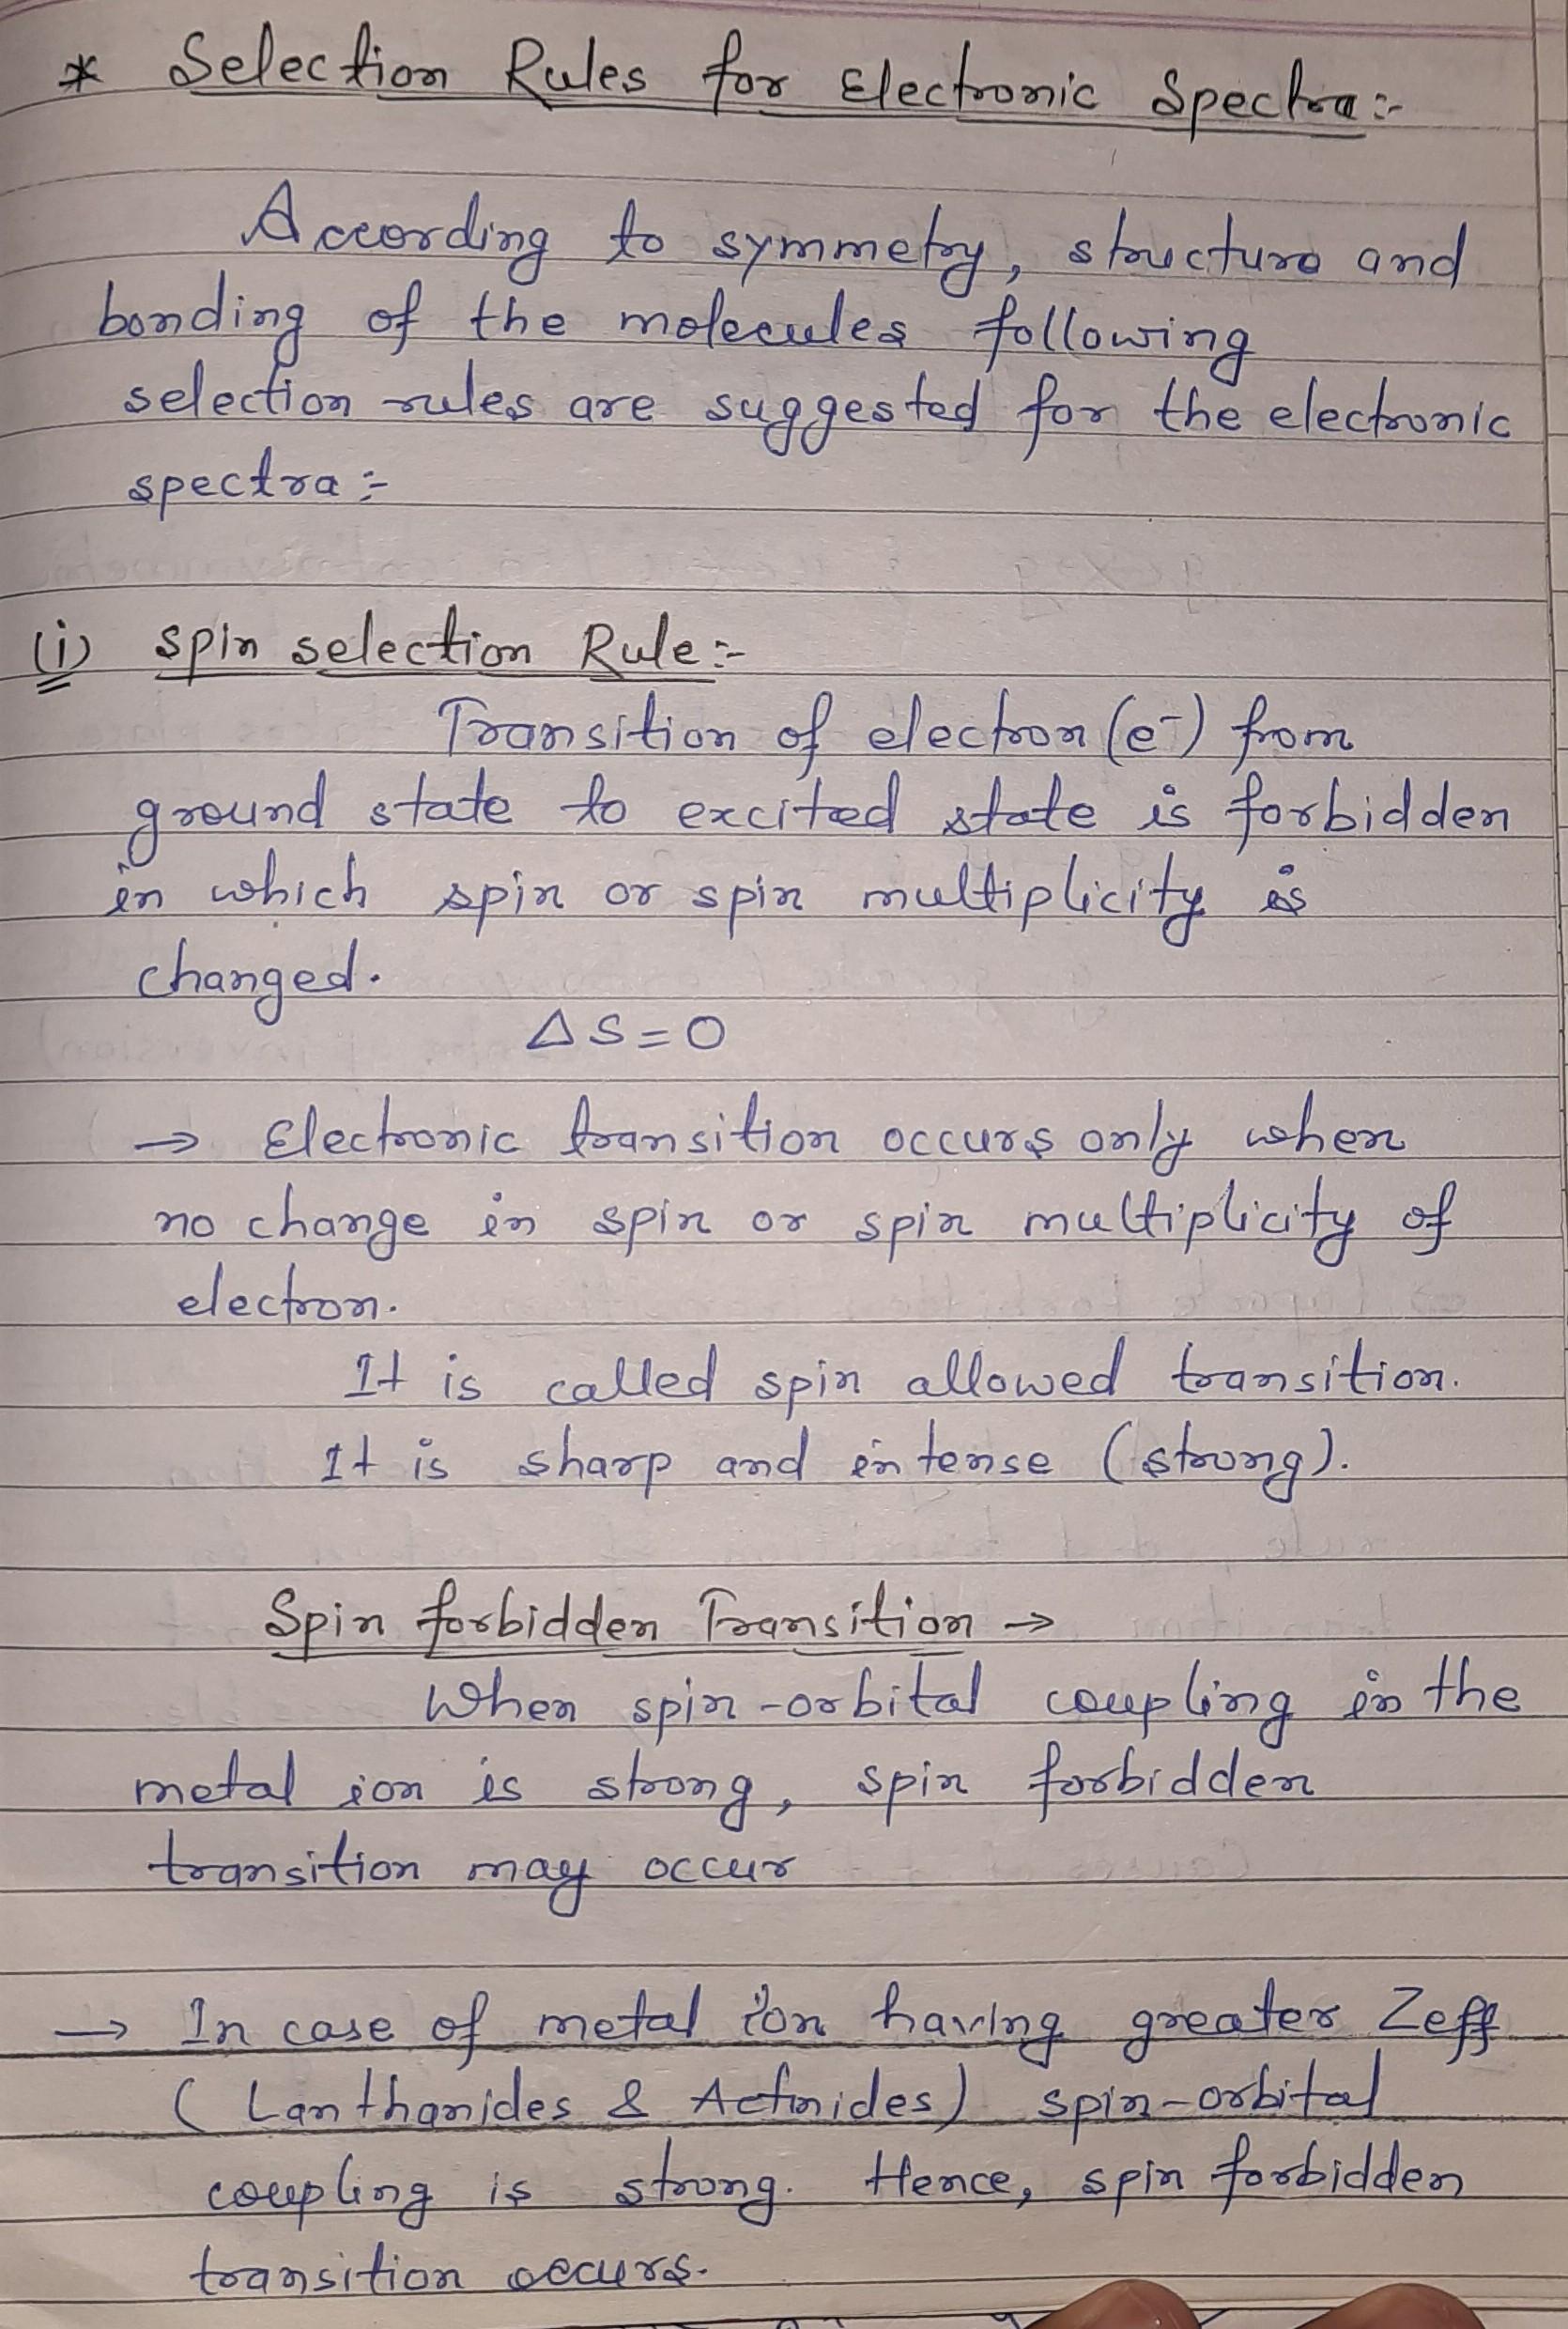 * Selection Rules for Electronic Spectra:-
According to symmetry, structure and
bonding of the molecules following
selection rules are suggested for the electronic
spectra :-
(i) spin selection Rule:-
Transition of electron (e⁻) from
ground state to excited state is forbidden
in which spin or spin multiplicity is
changed.
ΔS=0
→ Electronic transition occurs only when
no change in spin or spin multiplicity of
electron.
It is called spin allowed transition.
It is sharp and intense (strong).
Spin forbidden Transition →
When spin-orbital coupling in the
metal ion is strong, spin forbidden
transition may occur
→ In case of metal ion having greater Zeff
(Lanthanides & Actinides) spin-orbital
coupling is strong. Hence, spin forbidden
transition occurs.